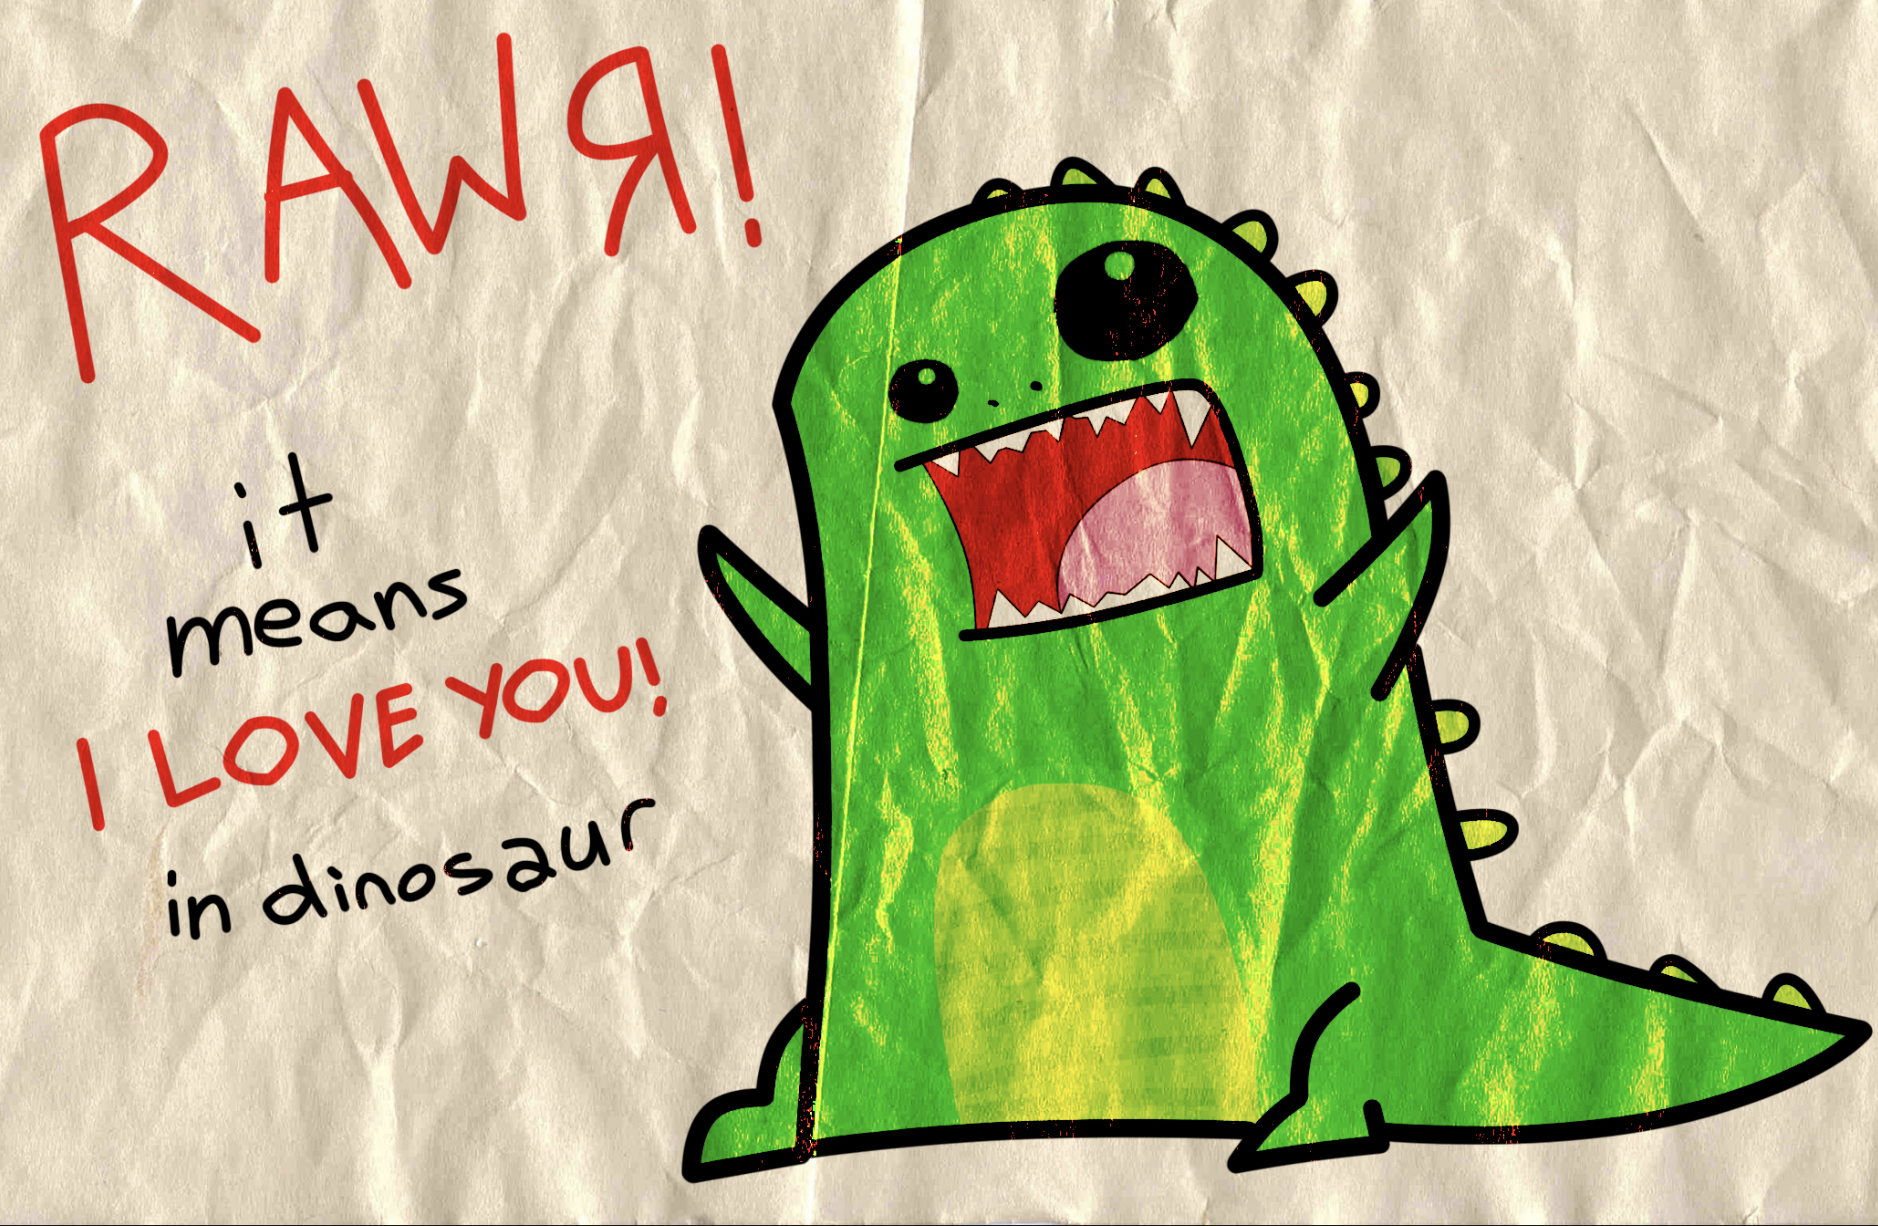 RAWЯ!
it
means
I LOVE YOU!
in dinosaur